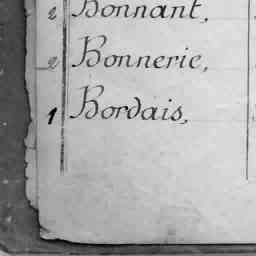 2 Bonnant,
2 Bonnerie,
1 Bordais,